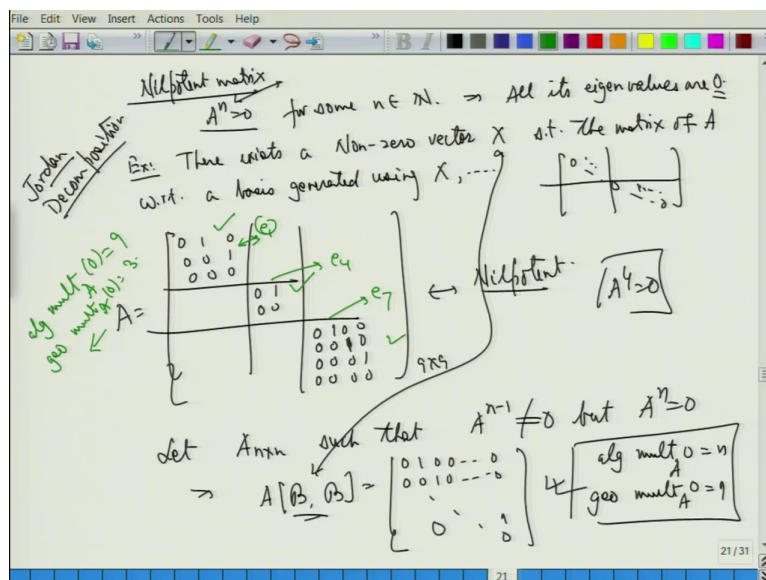 File Edit View Insert Actions Tools Help
Nilpotent matrix
A^n = 0 for some n ∈ N. ⇒ All its eigenvalues are 0.
Jordan Decomposition
Ex: There exists a Non-zero vector X s.t. The matrix of A
w.r.t. a basis generated using X, .....
alg mult_A (0) = 9
geo mult_A (0) = 3.
A =
0 1 0
0 0 1
0 0 0
e_1
0 1
0 0
e_4
0 1 0 0
0 0 1 0
0 0 0 1
0 0 0 0
e_7
9x9
↔ Nilpotent. A^4 = 0
Let A_nxn such that A^{n-1} ≠ 0 but A^n = 0
⇒ A[B, B] =
0 1 0 0 - - - 0
0 0 1 0 - - - 0
0 1
0
alg mult_A 0 = n
geo mult_A 0 = 1
21 / 31
21